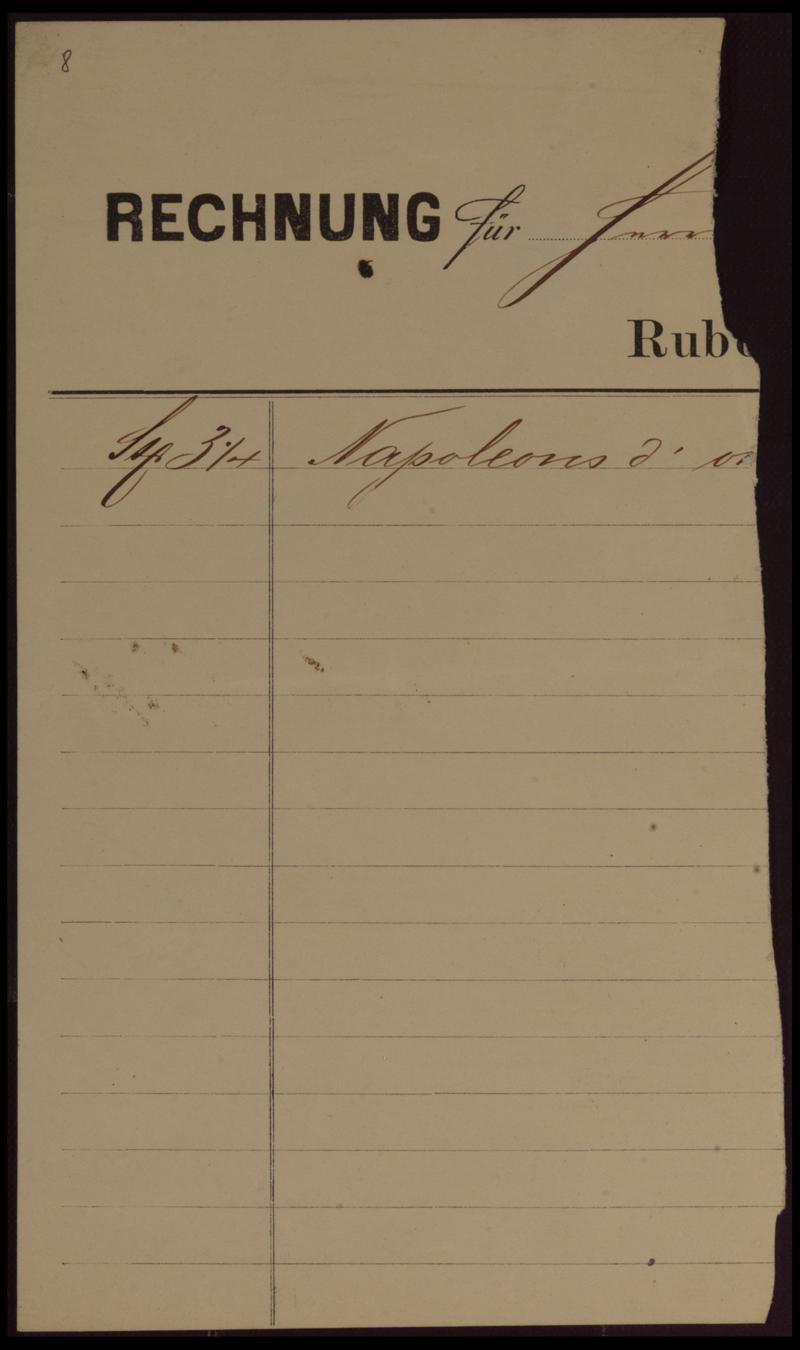 8
RECHNUNG für Herr
Rube
Stp 3 1/4 Napoleons d' or